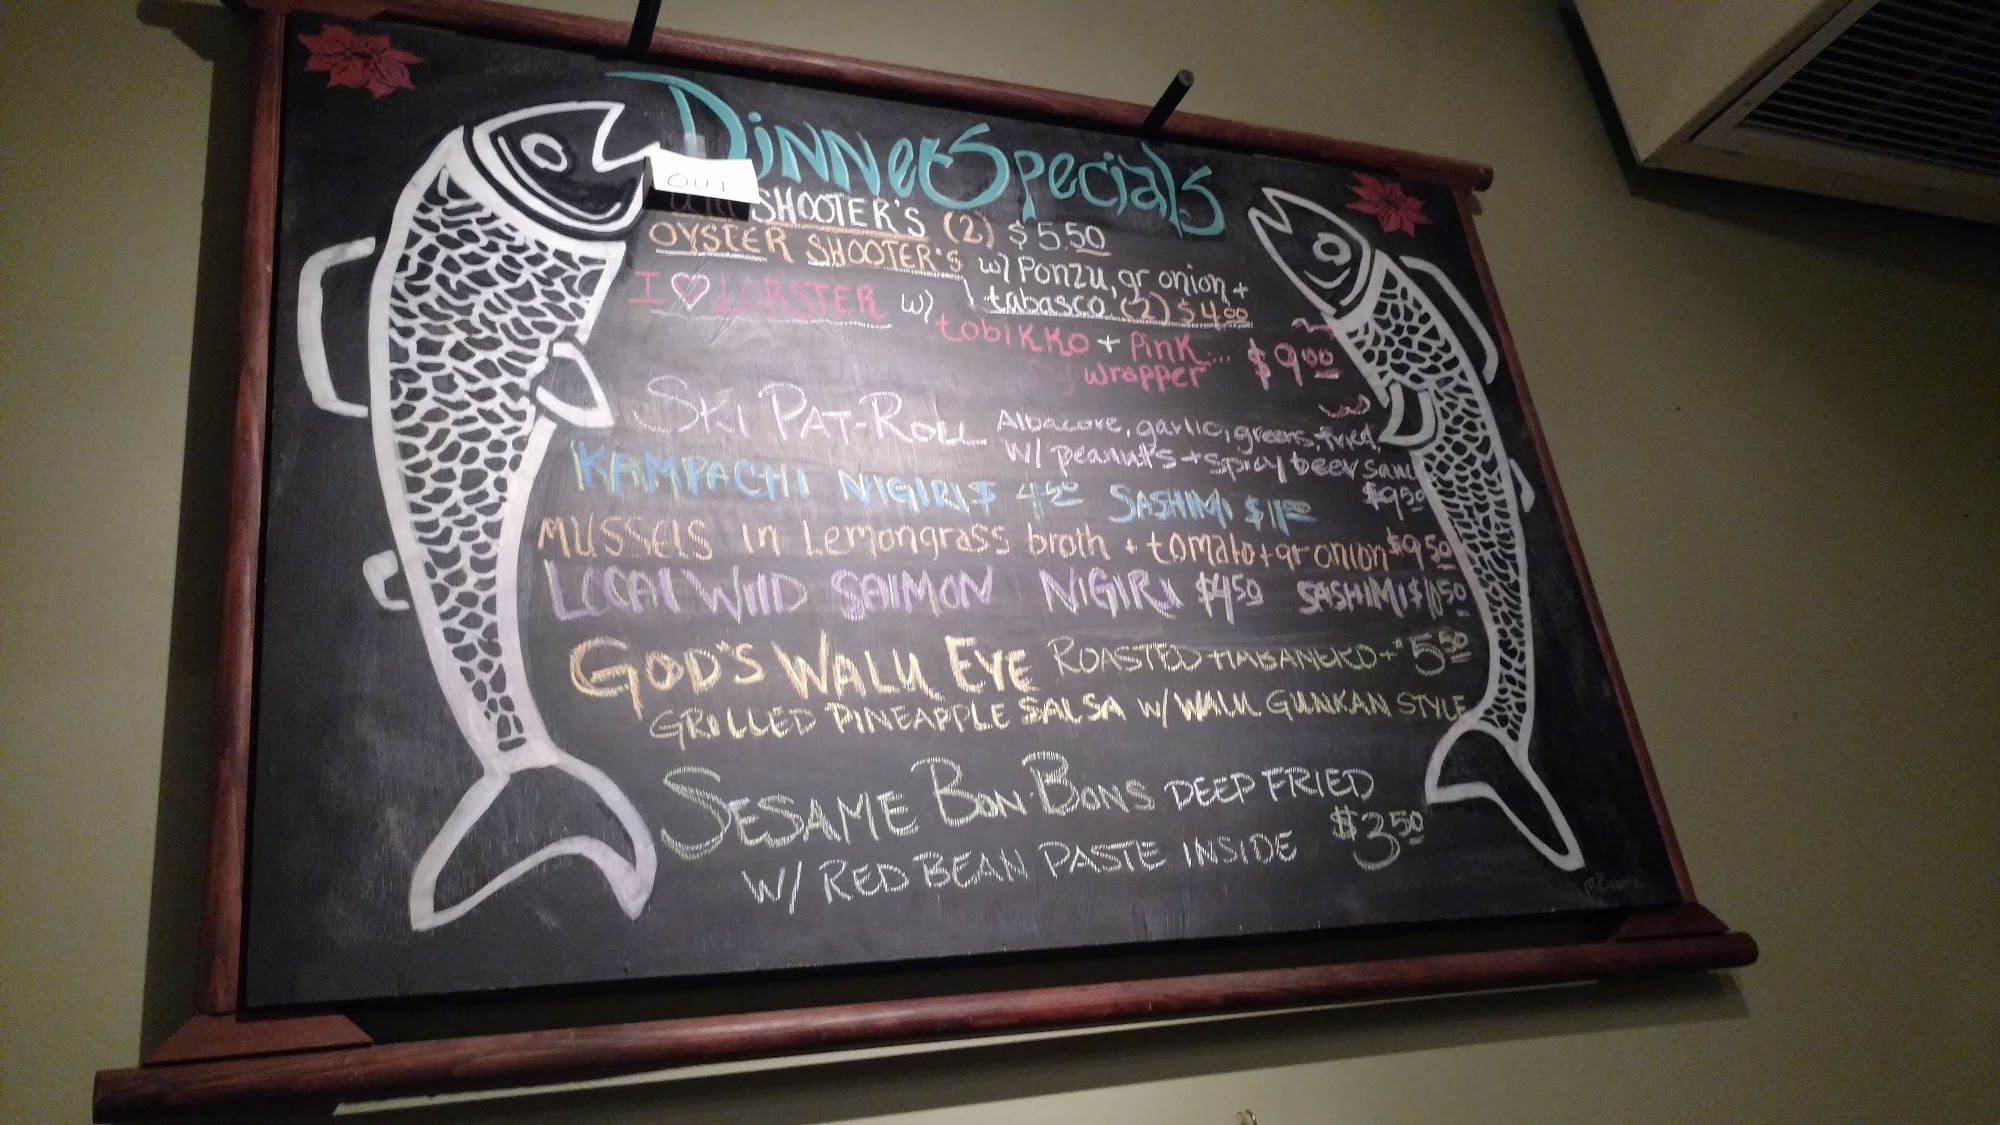 Dinner Specials
OUT
SHOOTER'S (2) $5.50
OYSTER SHOOTER'S w/ Ponzu, gr onion +
tabasco (2) $4.00
I ♡ LOBSTER w/
tobikko + Pink...
wrapper $9.00
SKI PAT-ROLL Albacore, garlic, greens, fried,
w/ peanuts + spicy beer sauce
$9.50
KAMPACHI NIGIRI $4.50 SASHIMI $11.00
MUSSELS in Lemongrass broth + tomato + gr onion $9.50
LOCAL WILD SALMON NIGIRI $4.50 SASHIMI
GOD'S WALU EYE ROASTED HABANERO + $5.50
GRILLED PINEAPPLE SALSA W/ WALU GUNKAN STYLE
SESAME BON-BONS DEEP FRIED
W/ RED BEAN PASTE INSIDE $3.50